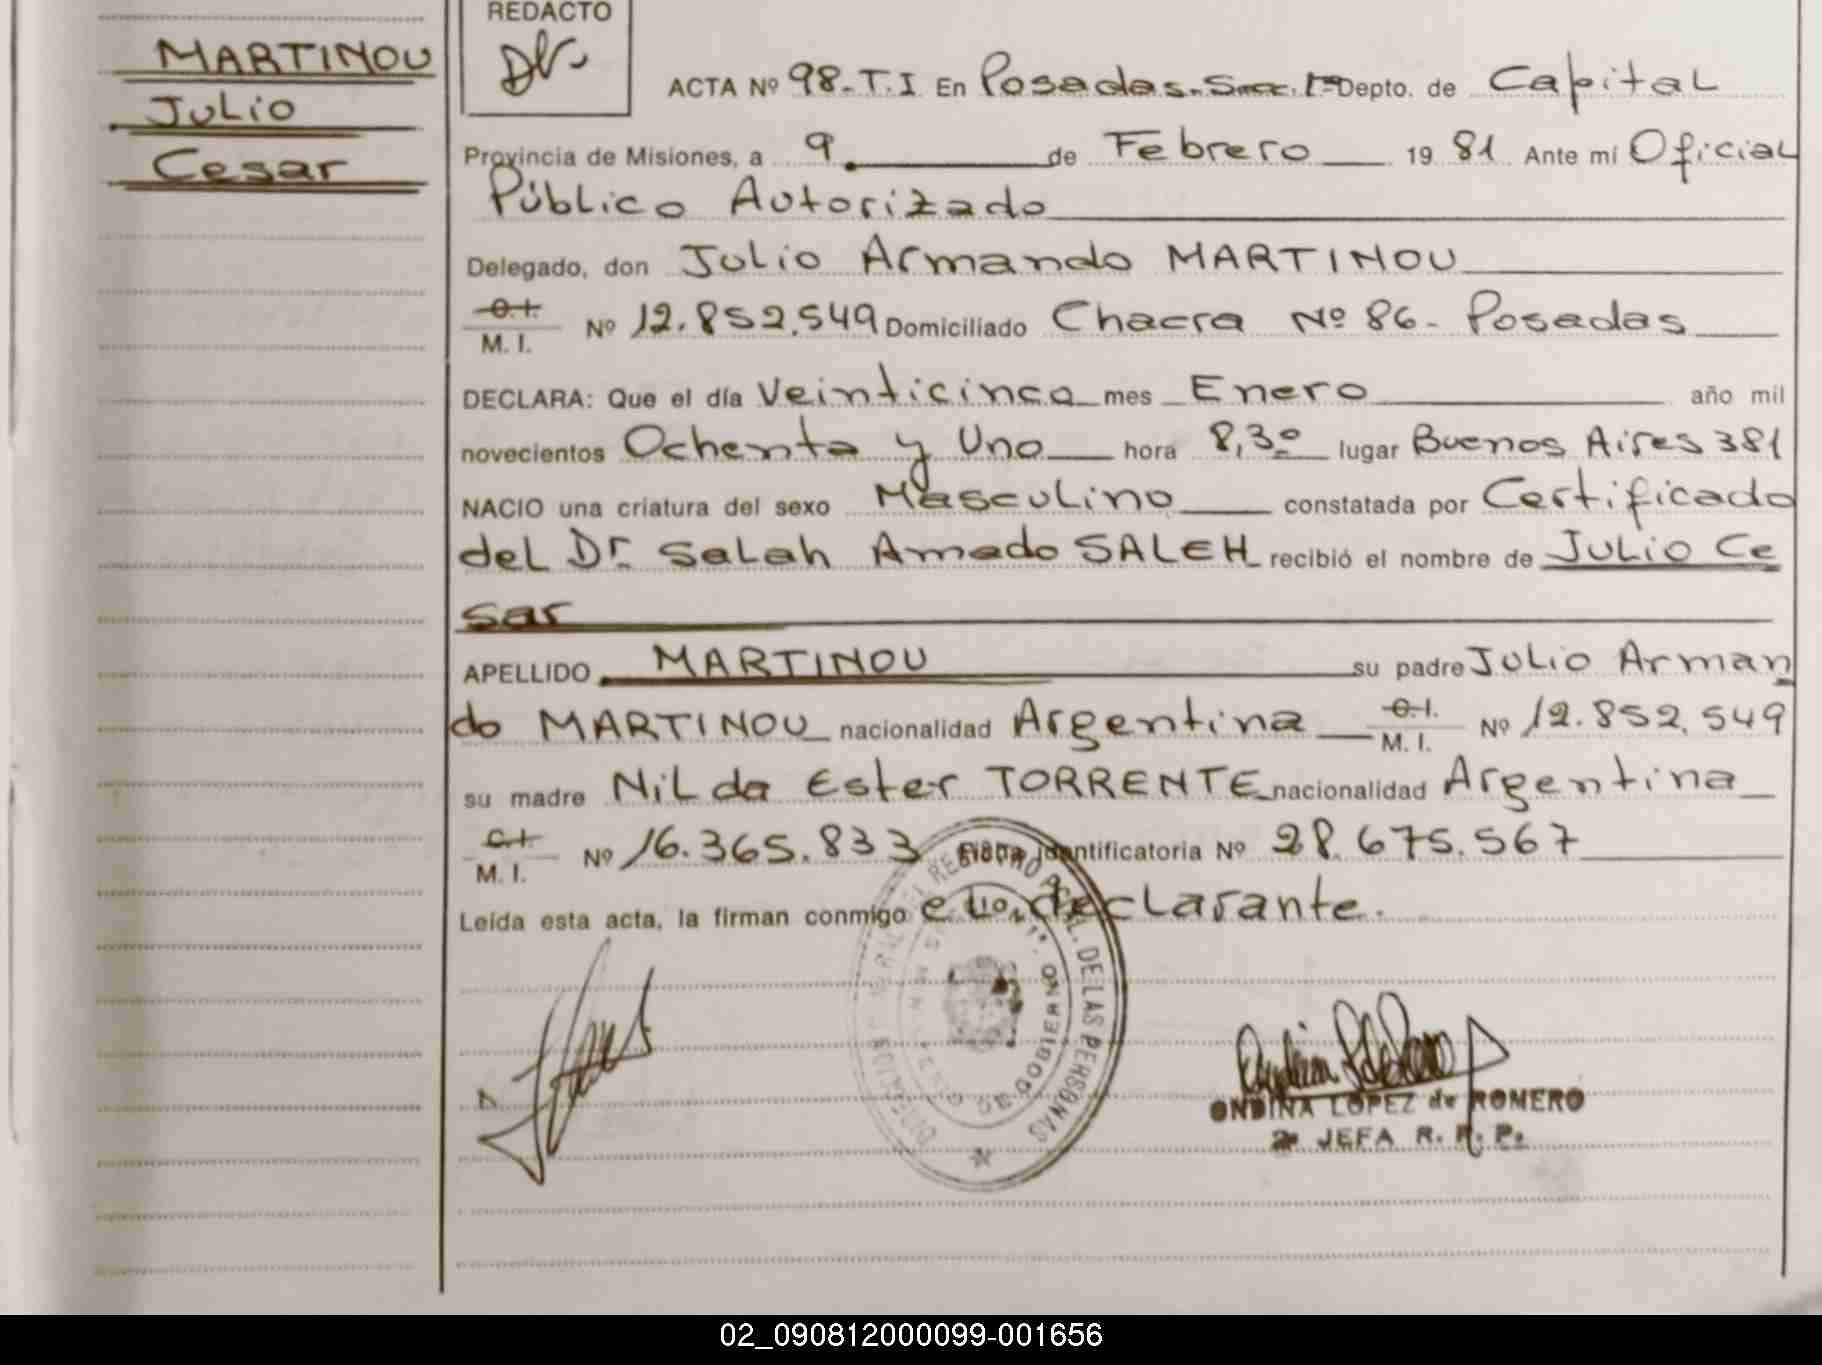 MARTINOU
Julio
Cesar
REDACTO
ACTA Nº 98-T.I En Posadas. Secc. 1ª Depto. de Capital
Provincia de Misiones, a 9 de Febrero 19 81 Ante mí Oficial
Público Autorizado
Delegado, don Julio Armando MARTINOU
C.I.
M. I. Nº 12.852.549 Domiciliado Chacra Nº 86- Posadas
DECLARA: Que el día Veinticinco mes Enero año mil
novecientos Ochenta y Uno hora 8,30 lugar Buenos Aires 381
NACIO una criatura del sexo Masculino constatada por Certificado
del Dr. Salah Amado SALEH recibió el nombre de Julio Ce
sar
APELLIDO MARTINOU su padre Julio Arman
do MARTINOU nacionalidad Argentina C.I. M. I. Nº 12.852.549
su madre Nilda Ester TORRENTE nacionalidad Argentina
C.I.
M. I. Nº 16.365.833 Ficha identificatoria Nº 28.675.567
Leída esta acta, la firman conmigo el declarante.
DE LAS PERSONAS
GOBIERNO
ONDINA LOPEZ de ROMERO
2ª JEFA R. R. P.
02_090812000099-001656